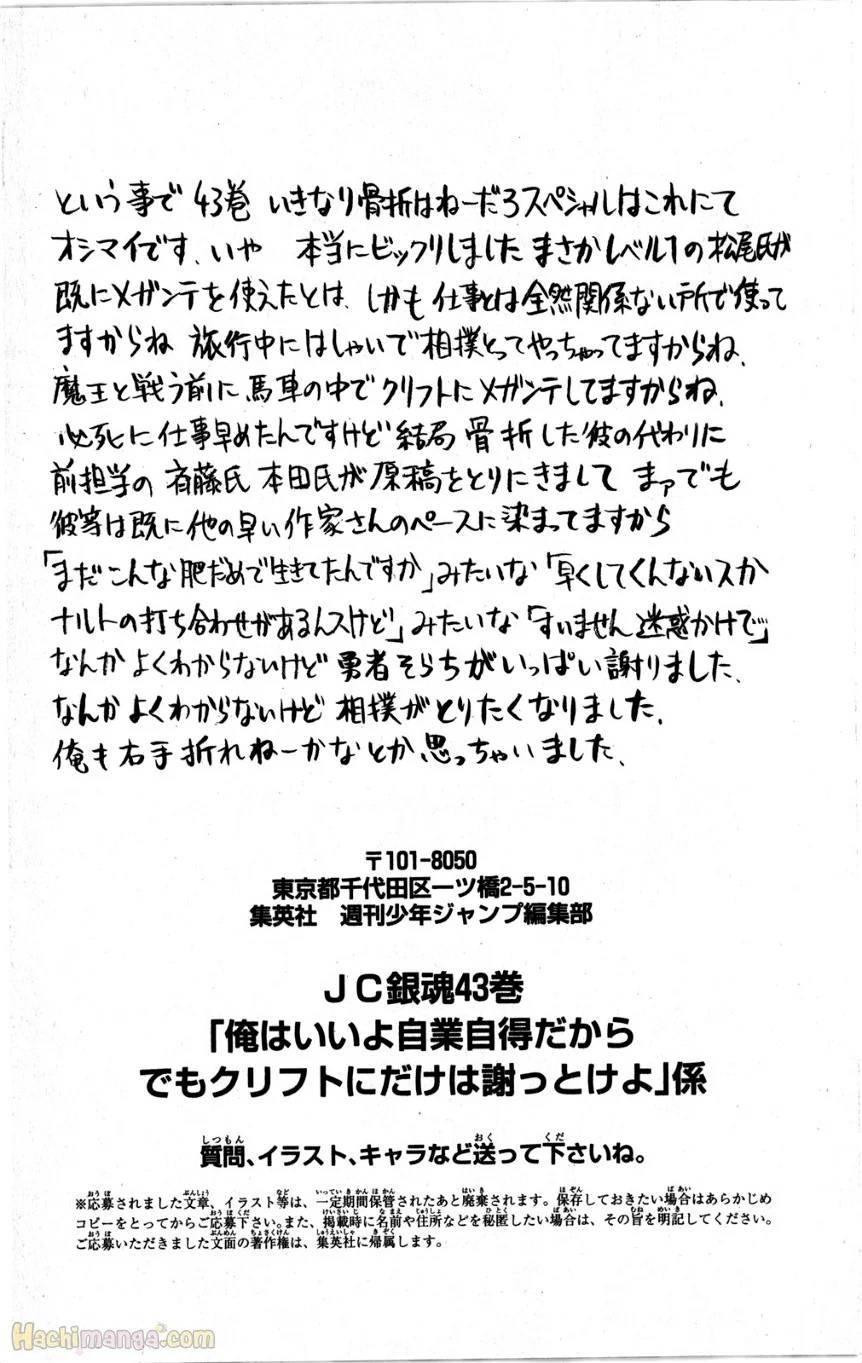 という事で 43巻 いきなり骨折はねーだろスペシャルはこれにて
オシマイです、いや 本当にビックリしました まさかレベル1の松尾氏が
既にメガンテを使えたとは、しかも仕事とは全然関係ない所で使って
ますからね 旅行中にはしゃいで相撲とってやっちゃってますからね、
魔王と戦う前に馬車の中でクリフトにメガンテしてますからね、
必死に仕事早めたんですけど結局 骨折した彼の代わりに
前担当の 斉藤氏 本田氏が原稿をとりにきまして まァでも
彼等は既に他の早い作家さんのペースに染まってますから
「まだこんな肥だめで生きてたんですか」みたいな「早くしてくんないスか
ナルトの打ち合わせがあるんスけど」みたいな「すいません迷惑かけで」
なんかよくわからないけど勇者そらちがいっぱい謝りました、
なんかよくわからないけど相撲がとりたくなりました、
俺も右手折れねーかなとか思っちゃいました、
〒101-8050
東京都千代田区一ツ橋2-5-10
集英社 週刊少年ジャンプ編集部
JC銀魂43巻
「俺はいいよ自業自得だから
でもクリフトにだけは謝っとけよ」係
質問、イラスト、キャラなど送って下さいね。
※応募されました文章、イラスト等は、一定期間保管されたあと廃棄されます。保存しておきたい場合はあらかじめ
コピーをとってからご応募下さい。また、掲載時に名前や住所などを秘匿したい場合は、その旨を明記してください。
ご応募いただきました文面の著作権は、集英社に帰属します。
Hachimanga.com